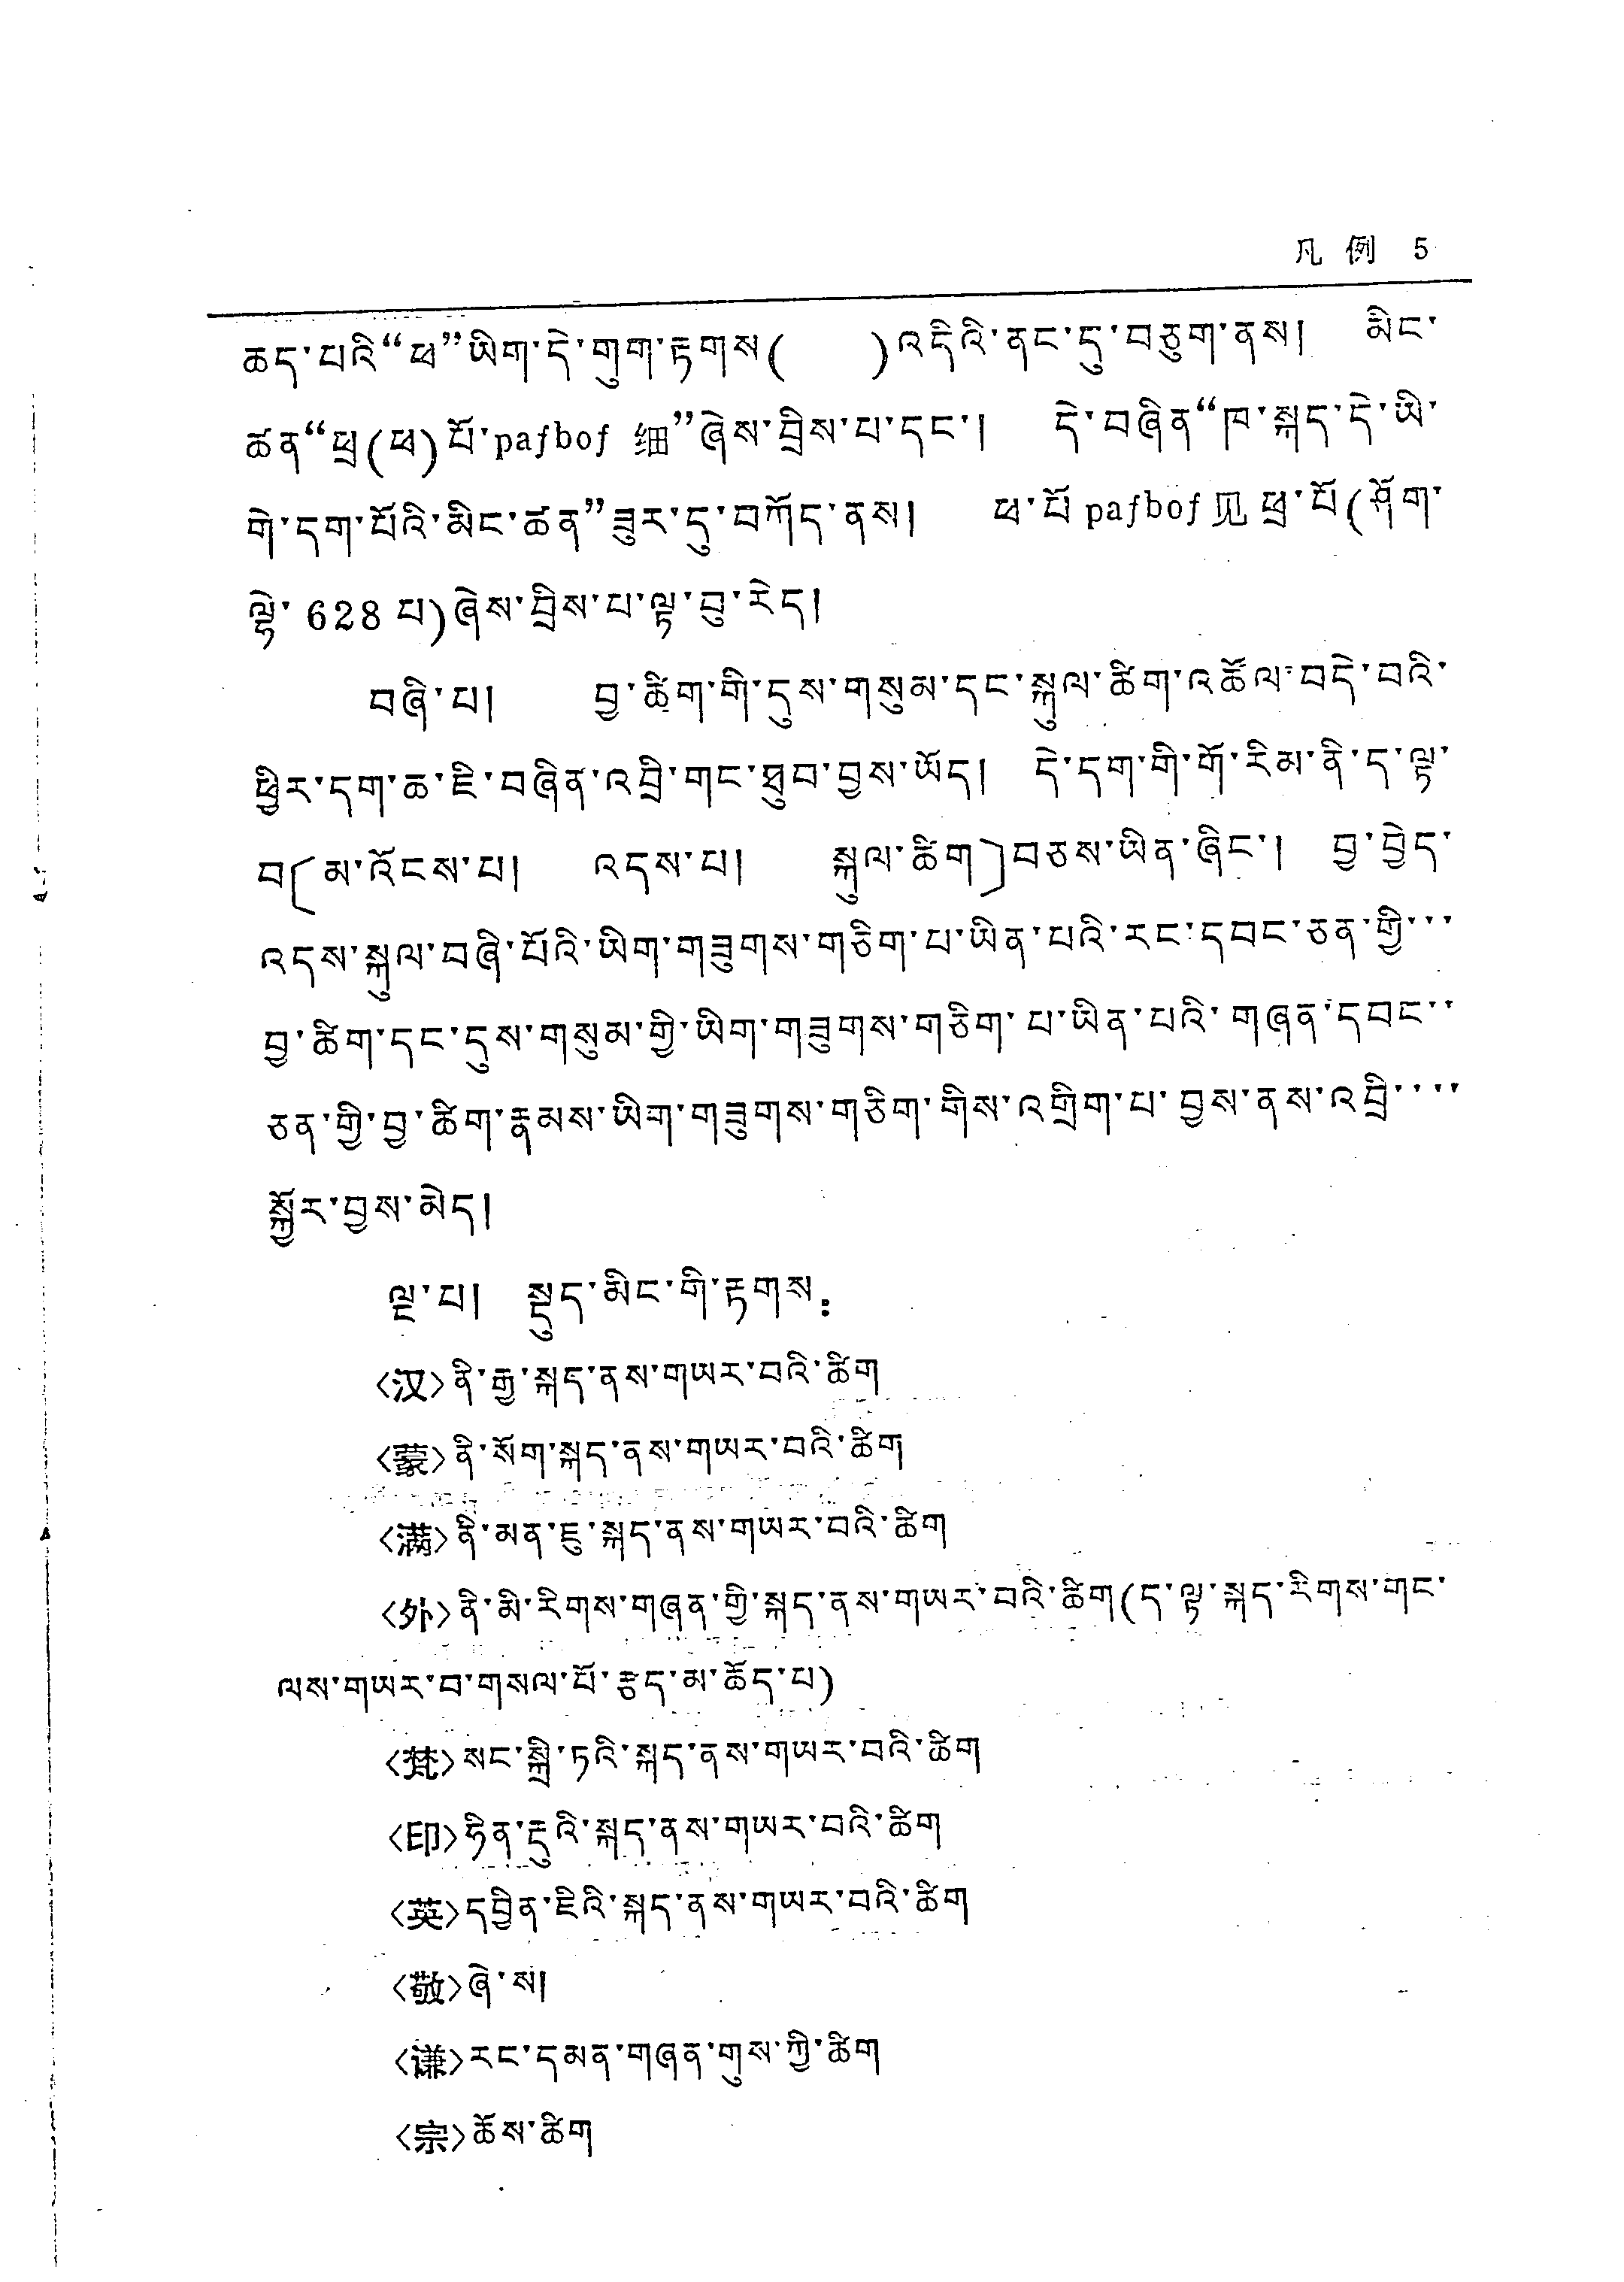 凡例 5
ཆད་པའི“ཕ”ཡིག་དེ་གུག་རྟགས( )འདིའི་ནང་དུ་བཅུག་ནས། མིང་
ཚན“ཕྲ(ཕ)པོ་paſboſ 细”ཞེས་བྲིས་པ་དང་། དེ་བཞིན“ཁ་སྐད་དེ་ཡི་
གེ་དག་པོའི་མིང་ཚན”ཟུར་དུ་བཀོད་ནས། ཕ་པོ paſboſ见 ཕྲ་པོ(ཤོག་
ལྷེ་ 628 པ)ཞེས་བྲིས་པ་ལྟ་བུ་རེད།
བཞི་པ། བྱ་ཚིག་གི་དུས་གསུམ་དང་སྐུལ་ཚིག་འཚོལ་བདེ་བའི་
ཕྱིར་དག་ཆ་ཇི་བཞིན་འབྲི་གང་ཐུབ་བྱས་ཡོད། དེ་དག་གི་གོ་རིམ་ནི་ད་ལྟ་
བ〔མ་འོངས་པ། འདས་པ། སྐུལ་ཚིག〕བཅས་ཡིན་ཞིང་། བྱ་བྱེད་
འདས་སྐུལ་བཞི་པོའི་ཡིག་གཟུགས་གཅིག་པ་ཡིན་པའི་རང་དབང་ཅན་གྱི་་་
བྱ་ཚིག་དང་དུས་གསུམ་གྱི་ཡིག་གཟུགས་གཅིག་པ་ཡིན་པའི་གཞན་དབང་་
ཅན་གྱི་བྱ་ཚིག་རྣམས་ཡིག་གཟུགས་གཅིག་གིས་འགྲིག་པ་བྱས་ནས་འབྲི་་་་
སྐྱོར་བྱས་མེད།
ལྔ་པ། སྡུད་མིང་གི་རྟགས:
〈汉〉ནི་རྒྱ་སྐད་ནས་གཡར་བའི་ཚིག
〈蒙〉ནི་སོག་སྐད་ནས་གཡར་བའི་ཚིག
〈满〉ནི་མན་ཇུ་སྐད་ནས་གཡར་བའི་ཚིག
〈外〉ནི་མི་རིགས་གཞན་གྱི་སྐད་ནས་གཡར་བའི་ཚིག(ད་ལྟ་སྐད་རིགས་གང་
ལས་གཡར་བ་གསལ་པོ་རྩད་མ་ཆོད་པ)
〈梵〉སང་སྐྲི་ཏའི་སྐད་ནས་གཡར་བའི་ཚིག
〈印〉ཧིན་དུའི་སྐད་ནས་གཡར་བའི་ཚིག
〈英〉དབྱིན་ཇིའི་སྐད་ནས་གཡར་བའི་ཚིག
〈敬〉ཞེ་ས།
〈谦〉རང་དམན་གཞན་གུས་ཀྱི་ཚིག
〈宗〉ཆོས་ཚིག